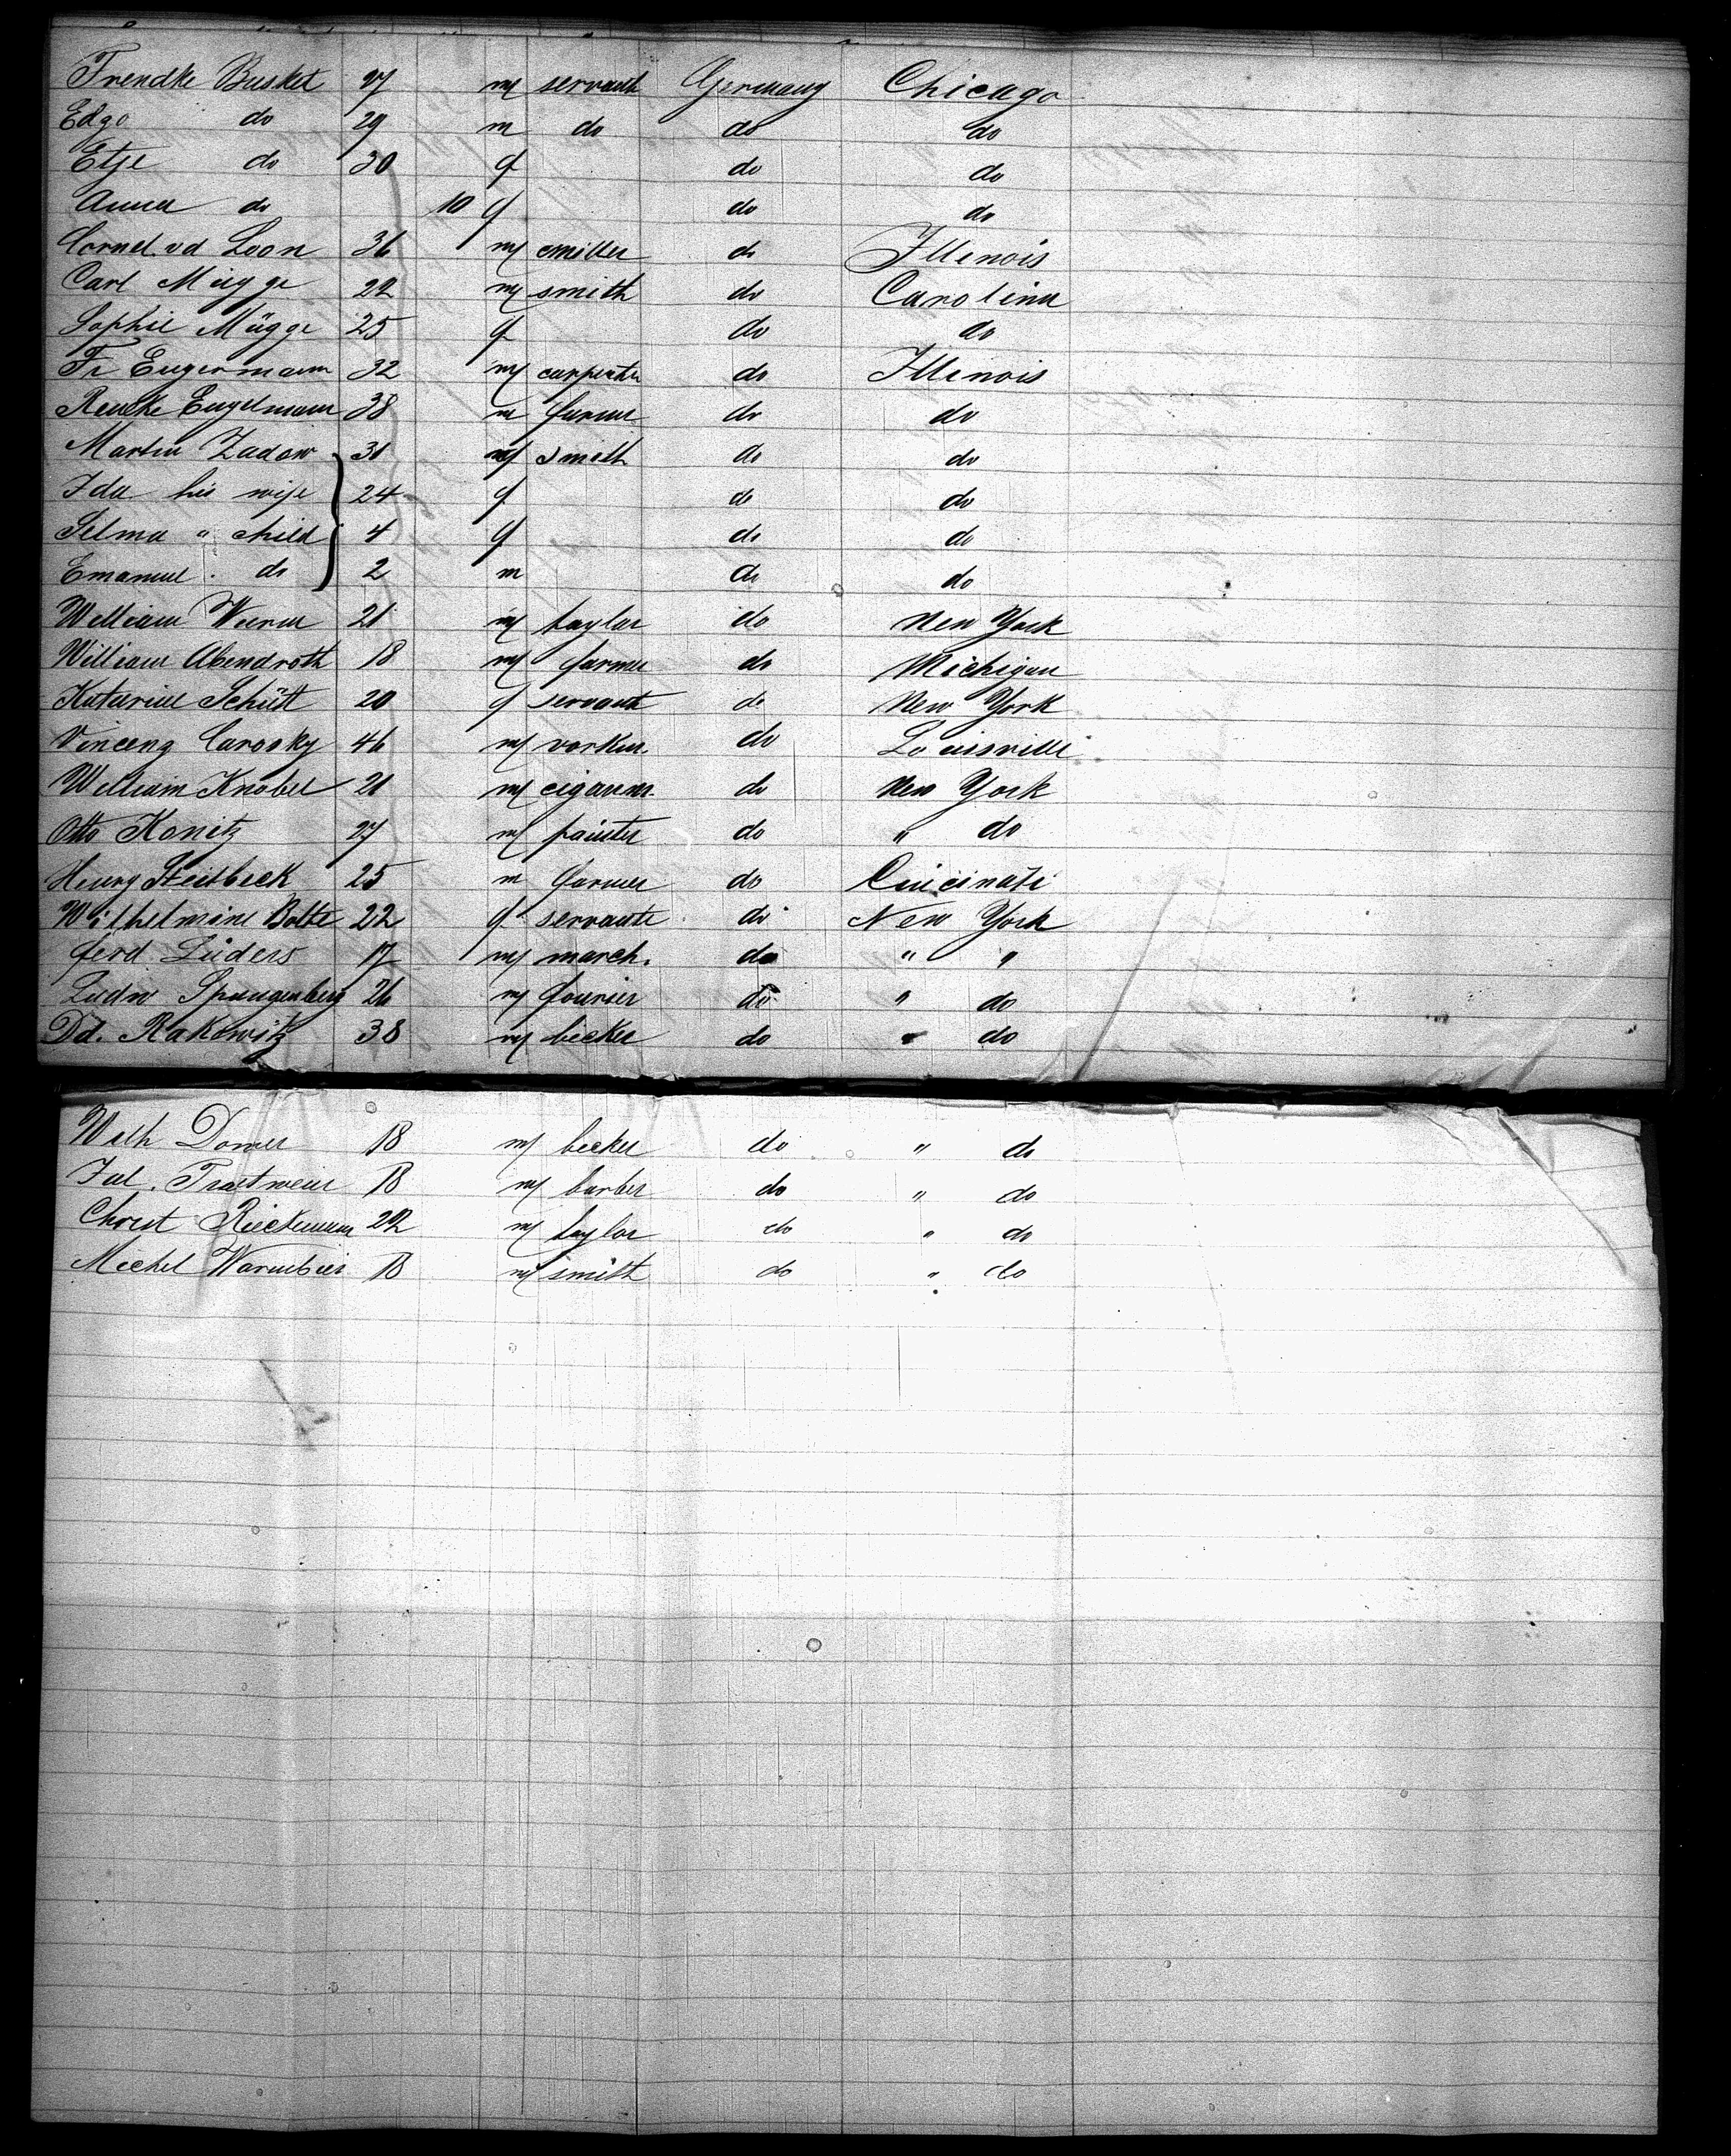 Frendke Busket 27 m servant Germany Chicago
Edzo do 29 m do do do
Etje do 30 f do do
Anna do 10 f do do
Cornel. vd Loon 36 m miller do Illenois
Carl Mügge 22 m smith do Carolina
Sophie Mügge 25 f do do
Fr Engermann 32 m carpenter do Illenois
Renke Engelmann 38 m farmer do do
Martin Zadow 31 m smith do do
Ida his wife 24 f do do
Selma " child 4 f do do
Emanuel . do 2 m do do
William Wurm 21 m taylor do New York
William Abendroth 18 m farmer do Michigan
Katarine Schütt 20 f servant do New York
Vincenz Carosky 46 m vorker. do Louisville
William Knobel 21 m cigarmr. do New York
Otto Konitz 27 m painter do " do
Henry 25 m farmer do Cincinati
Wilhelmine Bolte 22 f servante do New York
ferd Lüders 17 m march. do " "
Ludw Spangenberg 26 m fourier do " do
Dd. Rakowitz 38 m becker do " do
Wilh Domer 18 m becker do " do
Jul. Trautwein 18 m barber do " do
Christ Rieckmann 22 m taylor do " do
Michel Warmbier 18 m smith do " do